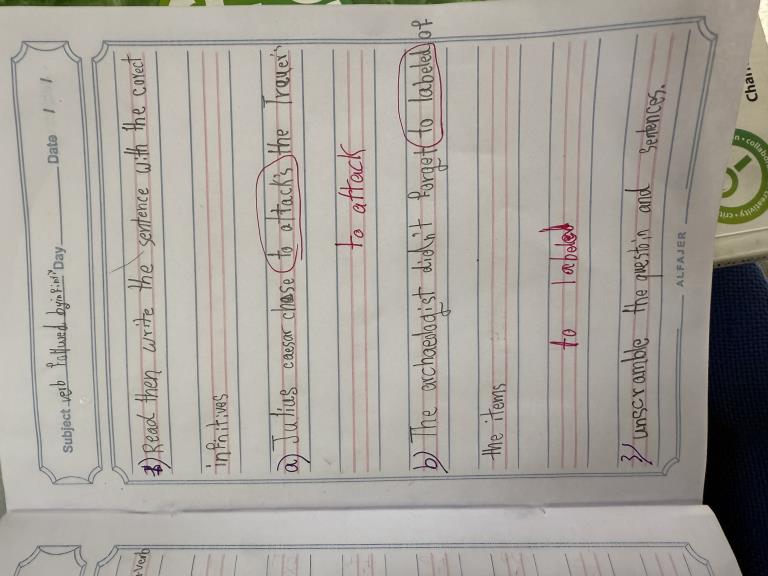 Subject verb followed by infini Day Date / /
2) Read then write the sentence with the corect
infinitives
a) Julius caesar chose to attacks the Traver's
to attack
b) The archaeologist didn't forget to labeled of
the items
to labeled
3/ unscramble the questoin and sentences.
ALFAJER
+verb
Chan
n • collabo
creativity • criti